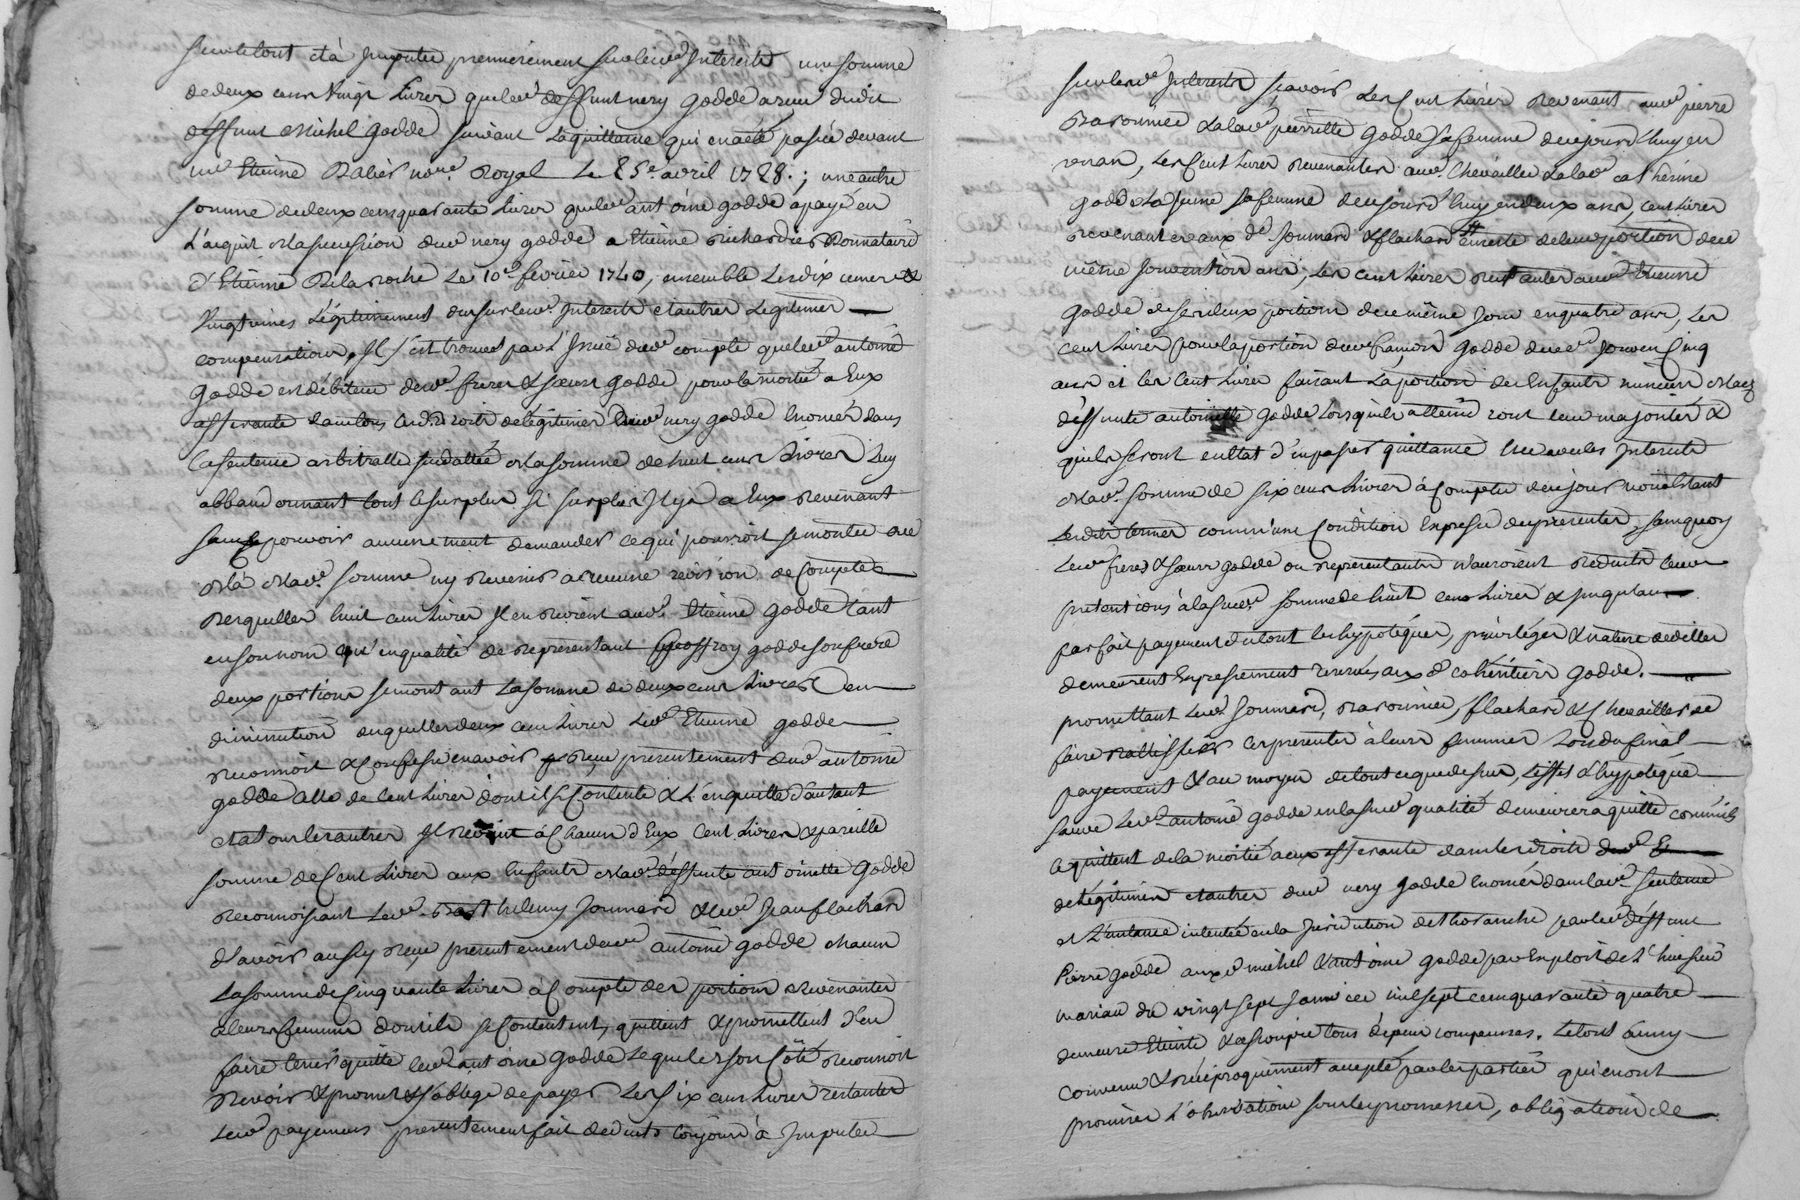 sur le tout et à Imputer premierement sur les ds Interets une somme
de deux cens vingt Livres que led deffunt nery godde a reçu dudit
deffunt Michel godde suivant la quittance qui en a été passée devant
me Etienne Balier nore Royal Le avril 1728. ; une autre
somme de deux cens quarante Livres que led antoine godde a payé en
L'acquit de la succession dud nery godde a Etienne Richardier Donnataire
d'Etienne Delaroche Le 10e fevrier 1740, ensemble Les dix
vingtiemes Légitimement dus sur led Interets et autres Legitimes
compensations, Il s'est trouvé par L'Issuë dud compte que led antoine
godde est débiteur desd freres & sœurs godde pour la moitié a Eux
afferante dans tous les droits de légitimes dud nery godde Enoncés dans
la sentence arbitralle susdattée de la somme de huit cens Livres Luy
abbandonnant tout le surplus si surplus Il y a a Eux Revenant
sans pouvoir aucunement demander ce qui pourroit se monter au
de là de lade somme ny Revenir a aucune révision de Compte
Desquelles huit cens Livres Il en Revient aud Etienne godde tant
en son nom qu'en qualité de Representant Geoffroy godde son frere
deux portions se montant La somme de deux cens Livres en
diminution desquelles deux cens Livres Led Etienne godde
Reconnoit & Confesse en avoir Reçu presentement dud antoine
godde celle de Cent Livres dont il se Contente & L'en quitte d'autant
et a tous les autres Il Revient à Chacun d'Eux Cent Livres & pareille
somme de Cent Livres aux Enfants de lade deffunte antoinette Godde
Reconnoissant Led Barthelemy Joumard & led Jean flachard
d'avoir aussy Reçu presentement dud antoine godde chacun
La somme de Cinquante Livres a Compte des portions Revenantes
a leurs femmes dont ils se Contentent, quittent & promettent d'en
faire tenir quitte led antoine Godde Lequel de son Côté Reconnoit
devoir & promet & s'oblige de payer Les Six cens Livres restantes
Led payement presentement fait deduits toujours à Imputer
sur lesd Interets sçavoir Les Cent Livres Revenant aud pierre
Rasounier & a lade pierrette Godde sa femme de ce jourd'huy en
un an, Les Cent Livres Revenantes aud Chevaillier & a lade catherine
godde La Jeune sa femme de ce jourd'huy en deux ans, Cent Livres
Revenantes aux ds Joumard & flachard de leur portion de ce
même Jour en trois ans, Les cent Livres Restantes aud Etienne
Godde de ses deux portions de ce même Jour en quatre ans, Les
cent Livres pour la portion dud françois Godde de ced Jour en Cinq
ans et les Cent Livres faisant La portion des Enfants mineurs de lade
deffunte antoinette godde Lorsqu'ils atteindront leur majorité &
qu'ils seront en Etat d'en passer quittance avec les Interets
de lade somme de six cens Livres à Compter de ce jour nonobstant
Lesdits termes comme une Condition Expresse des presentes, sans quoy
Lesd freres & sœurs godde ou Representants n'auroient Reduit leurs
pretentions à la susde somme de huit cens Livres & Jusqu'au
parfait payement du tout les hypotéques, privileges & nature d'icelles
demeurent Expressement reservés aux ds cohéritiers Godde.
promettant Lesd Joumard, Rasounier, flachard & Chevaillier de
faire Rattiffier ces presentes à leurs femmes Lors du final
payement & au moyen de tout ce que dessus, L'effet & hypotéque
sauve Led antoine godde en la susde qualité demeurera quitte comm'ils
le quittent de la moitié a eux afferante dans les droits
de Légitimes et autres dud nery godde Enoncés dans lade sentence
et L'instance intentée en la Jurisdiction de thoranche par led deffunt
Pierre godde auxds michel & antoine godde par Exploit de L'huissier
mariau du vingt sept Janvier mil sept cens quarante quatre
demeure Eteinte & assoupie tous dépens compensés. Le tout ainsy
Convenu & réciproquement accepté par les parties qui en ont
promis L'observation sous les promesses, obligations de